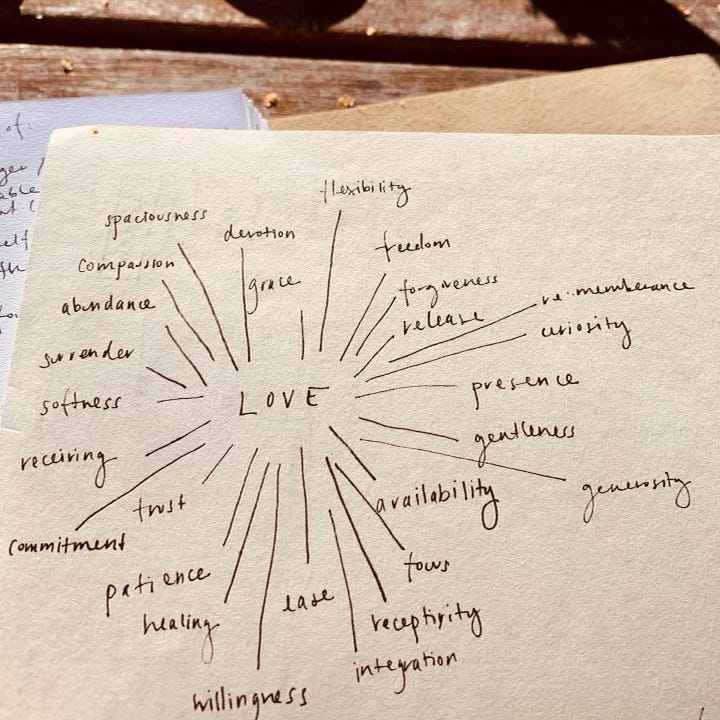 of:
flexibility
spaciousness
devotion
freedom
compassion
grace
forgiveness
re:memberance
abundance
release
curiosity
surrender
presence
softness
LOVE
gentleness
receiving
generosity
trust
availability
commitment
focus
patience
ease
healing
receptivity
integration
willingness